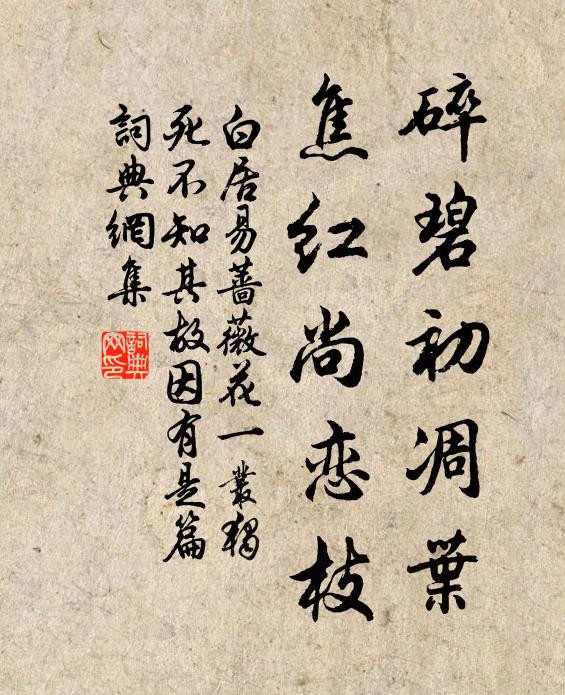 碎碧初凋葉
焦红尚恋枝
白居易薔薇花一叢獨
死不知其故因有是篇
詞典網集
詞典
网印